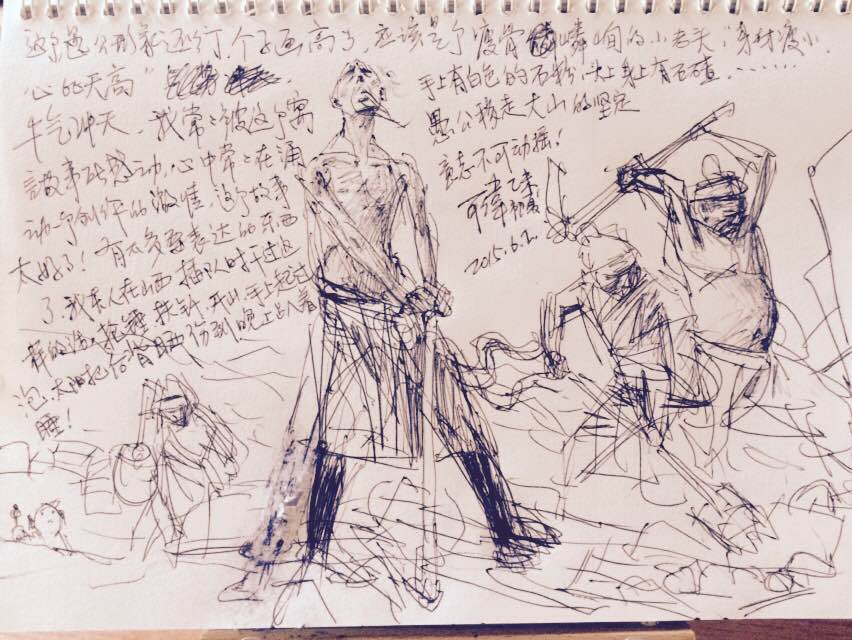 这个愚公形象还行,个子画高了,应该是个瘦骨嶙峋的小老头,"身材瘦小,
心比天高"
牛气冲天,我常常被这个寓
言故事所感动,心中常常在涌
动一个创作的激情,这个故事
太好了!有太多要表达的东西
了,我本人在山西插队时干过这
样的活,抡锤,扶钎,开山,手上起过
泡,太阳把后背晒伤到晚上出入
睡!
手上有白色的石粉,头上身上有石碴,……
愚公移走大山的坚定
意志不可动摇!
2015.6.2